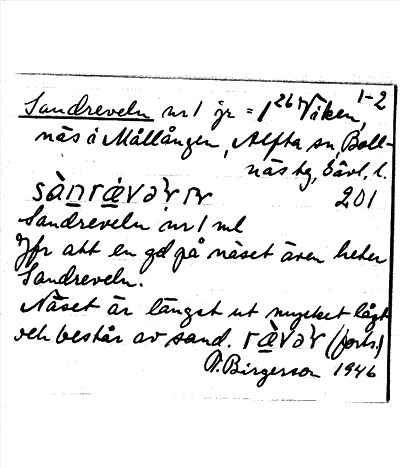 1-2
Sandreveln nr 1 jr = 1 26 Viken,
näs å Mållången, Alfta sn, Boll-
näs tg, Gävl. l.
201
Sandreveln nr 1 ml
Jfr att en gd på näset även heter
Sandreveln.
Näset är längst ut mycket lågt
och består av sand. (forts.)
Birgerson 1946